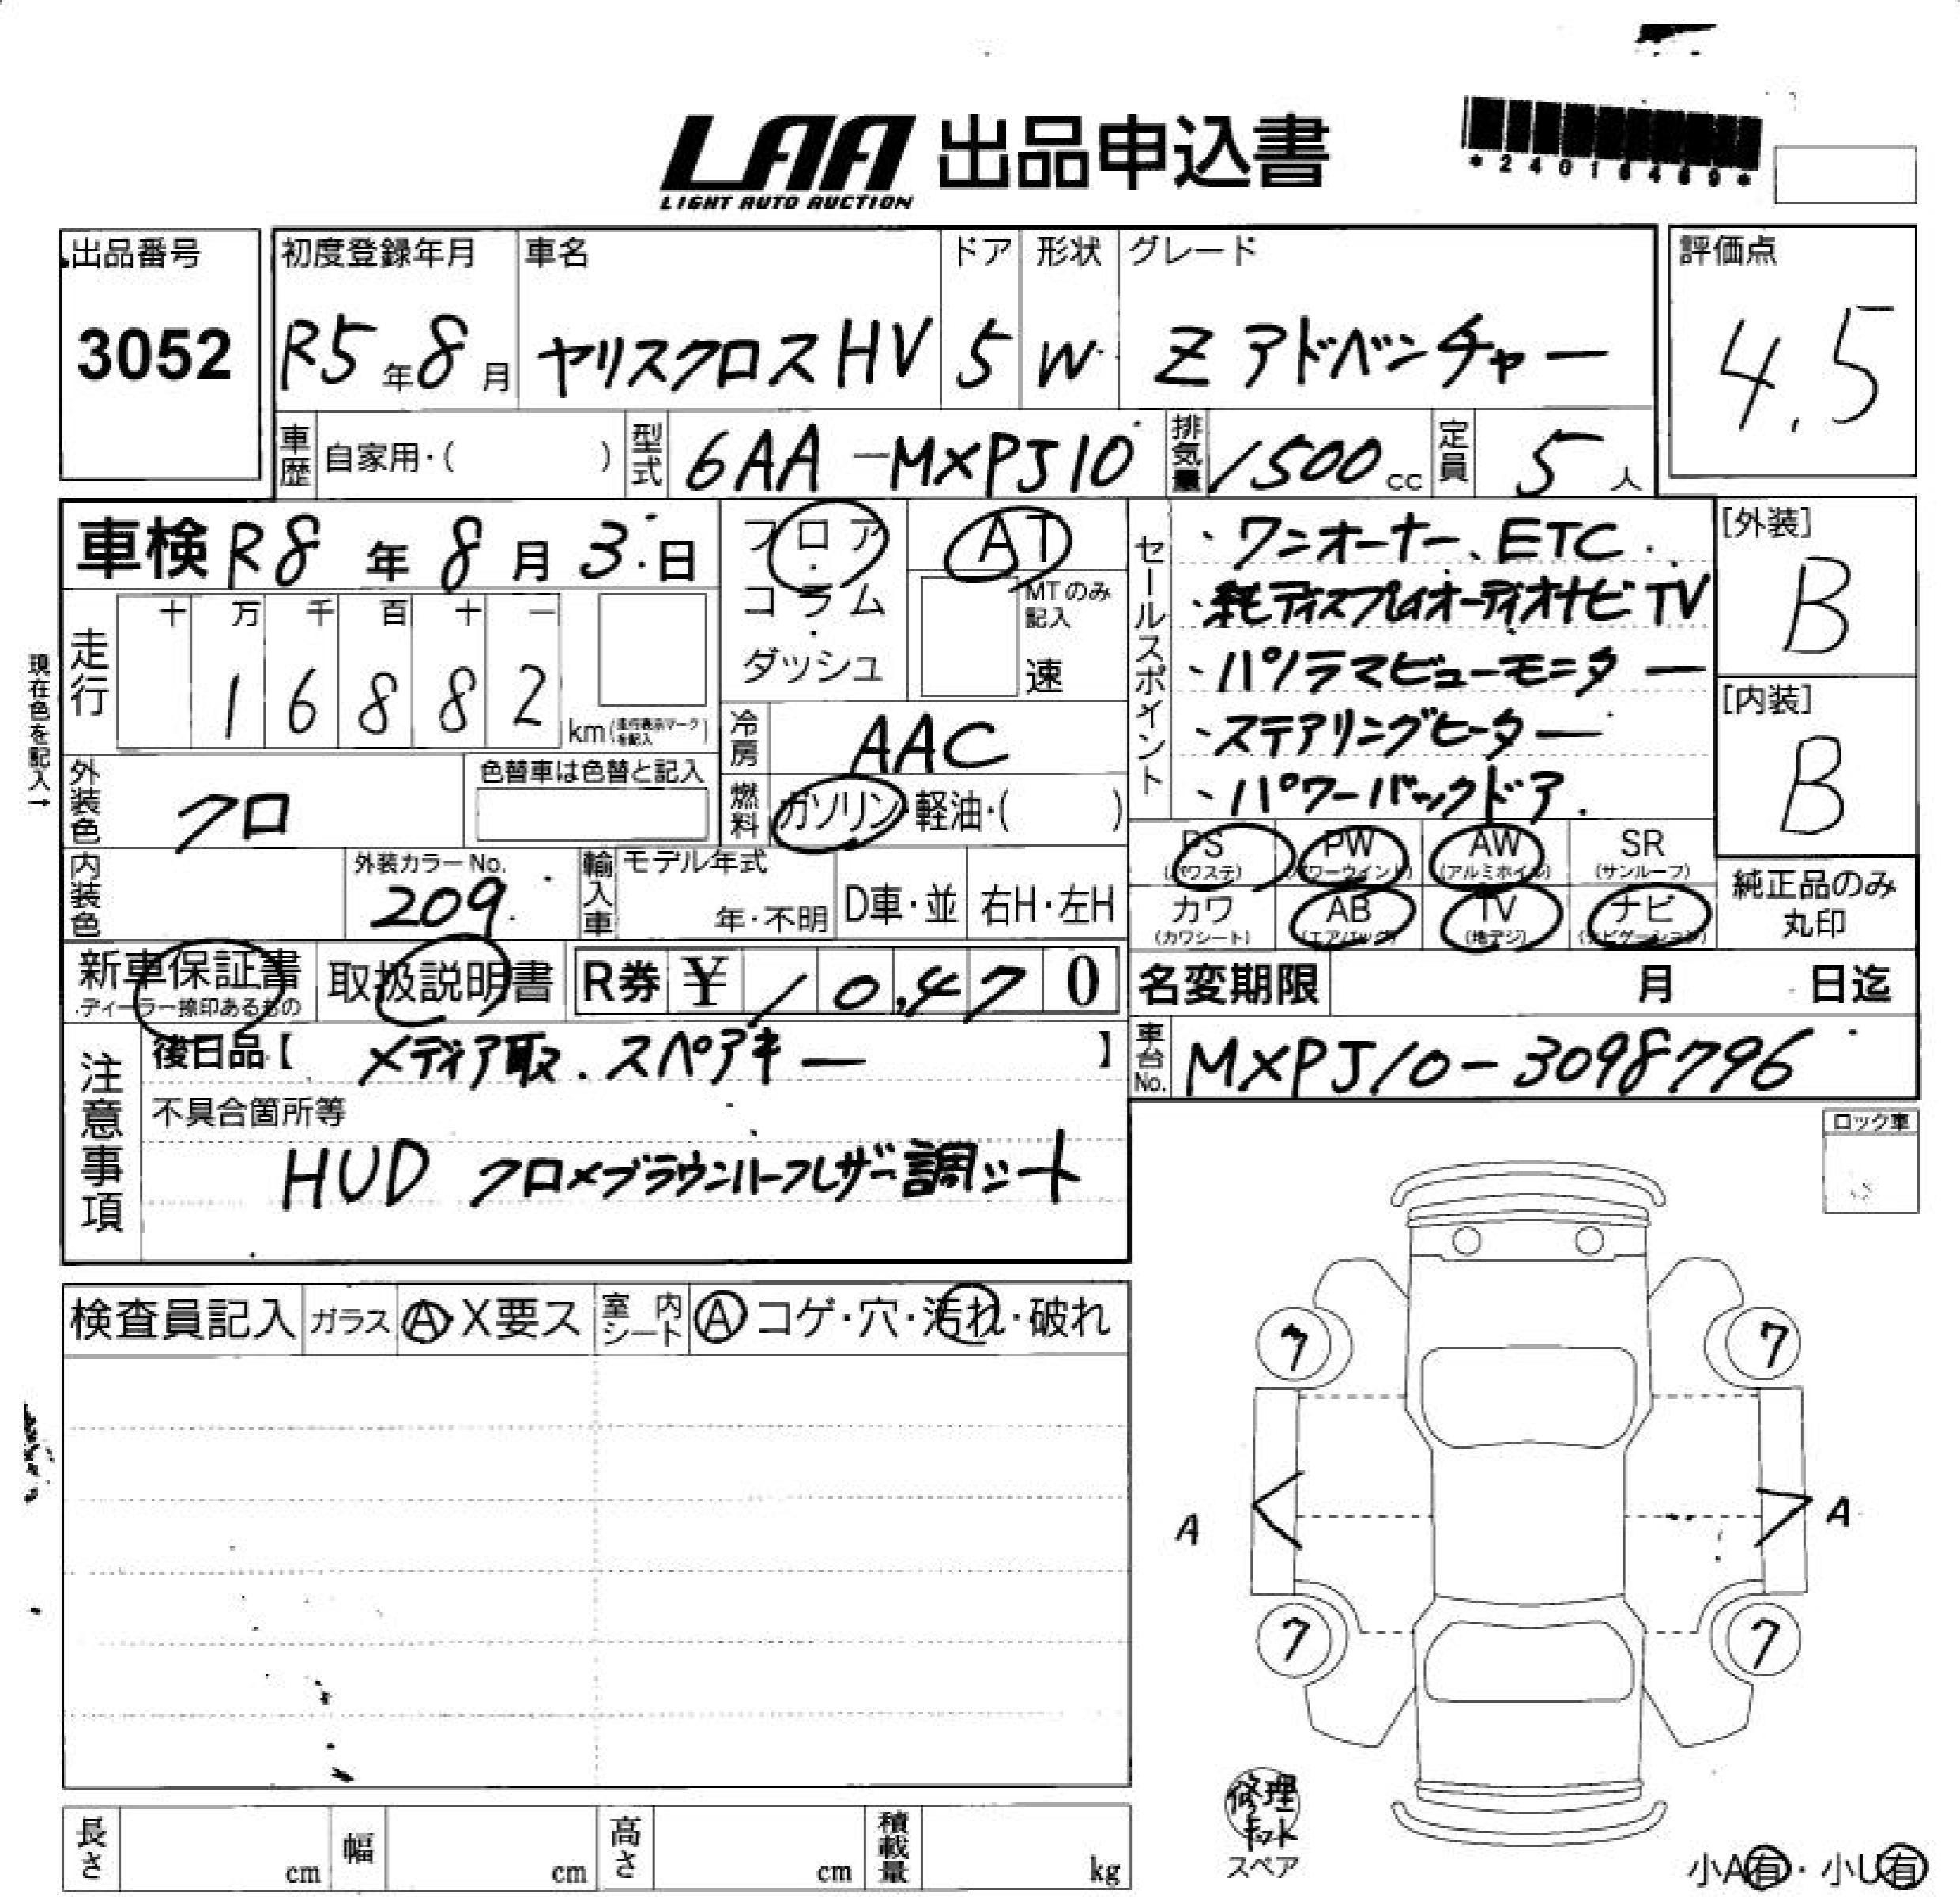 LAA 出品申込書
LIGHT AUTO AUCTION
*24018489*
出品番号 初度登録年月 車名 ドア 形状 グレード 評価点
3052 R5年8月 ヤリスクロスHV 5 W Z アドベンチャー 4.5
車歴 自家用・( ) 型式 6AA-MXPJ10 排気量 1500cc 定員 5人
車検 R8年8月3日 フロア・コラム・ダッシュ AT MTのみ記入 速
現在色を記入→
走行 十 万 千 百 十 一
16882 km(走行表示マークを記入)
冷房 AAC
外装色 クロ 色替車は色替と記入 燃料 ガソリン・軽油・( )
内装色 外装カラーNo. 209 輸入車 モデル年式 年・不明 D車・並 右H・左H
セールスポイント
・ワンオーナー、ETC
・純正ディスプレイオーディオナビTV
・パノラマビューモニター
・ステアリングヒーター
・パワーバックドア
[外装] B
[内装] B
PS (パワステ) PW (パワーウインド) AW (アルミホイル) SR (サンルーフ)
カワ (カワシート) AB (エアバッグ) TV (地デジ) ナビ (ナビゲーション)
純正品のみ丸印
新車保証書 ディーラー捺印あるもの 取扱説明書 R券 ¥10,470
名変期限 月 日迄
車台No. MXPJ10-3098796
注意事項
後日品【メディア取.スペアキー】
不具合箇所等
HUD クロメブラウンハーフレザー調シート
ロック車
検査員記入 ガラス A・X要ス 室内シート A コゲ・穴・汚れ・破れ
7 7
A A
7 7
修理キット
スペア
小A有・小U有
長さ cm 幅 cm 高さ cm 積載量 kg